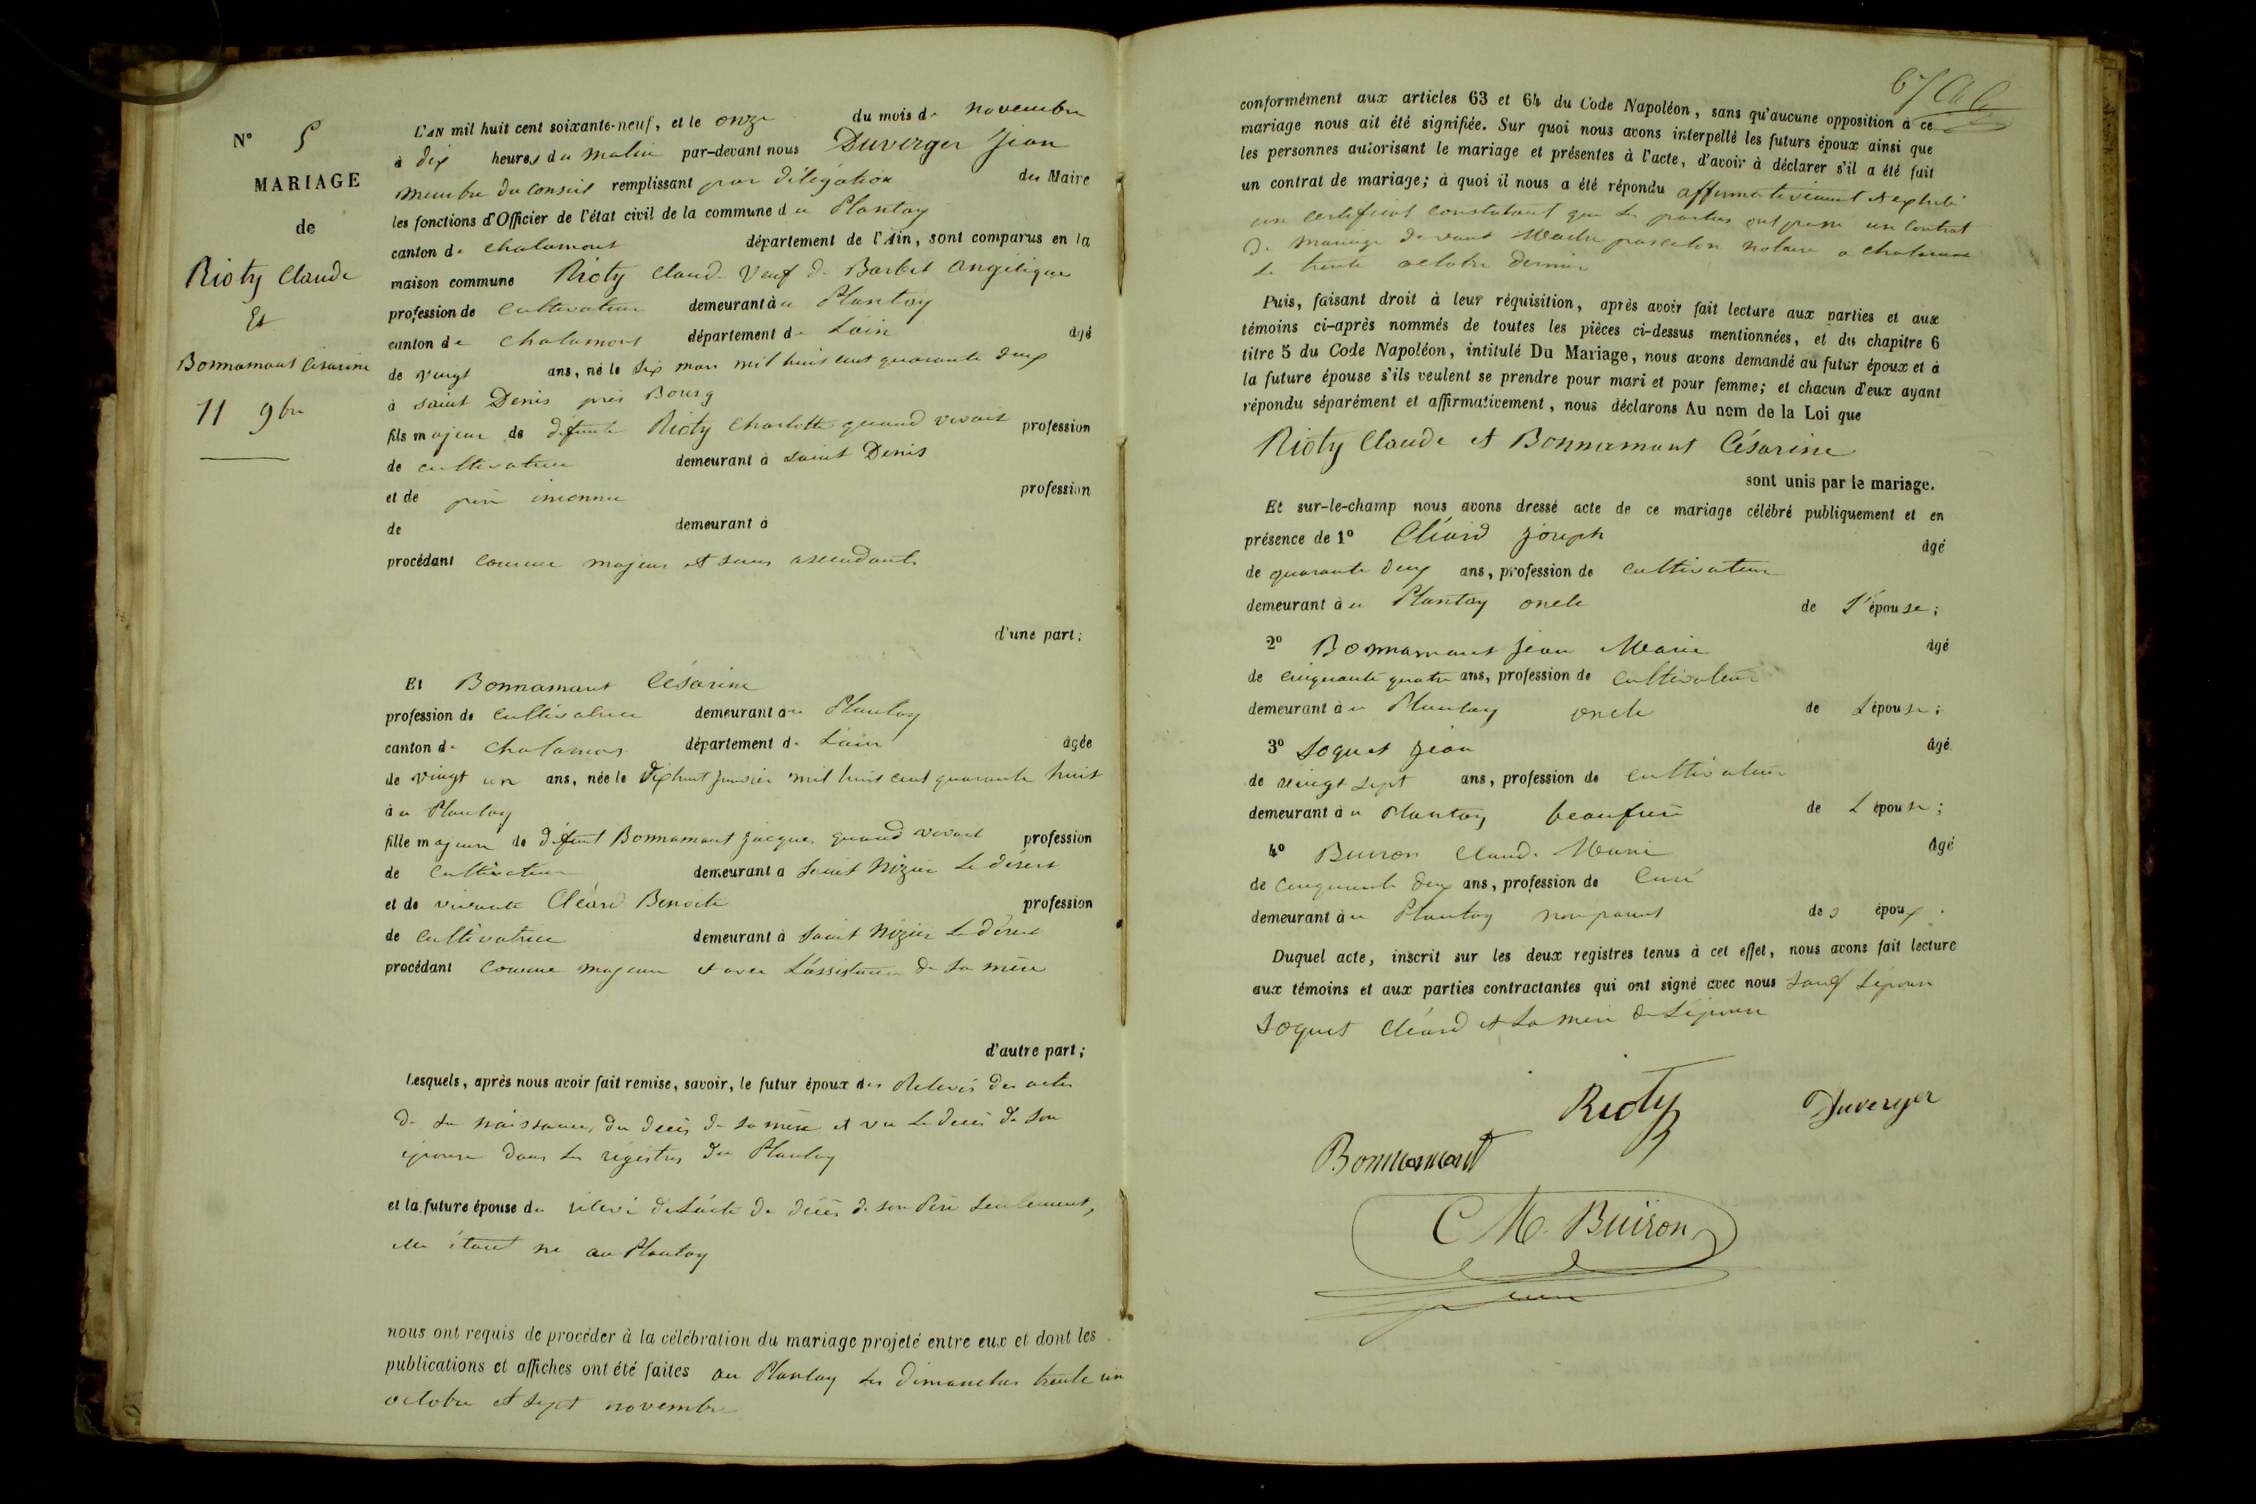 N° 5
MARIAGE
de
Rioty Claude
Et
Bonnamant Césarine
11 9bre
L'AN mil huit cent soixante-neuf, et le onze du mois de novembre
à dix heures du matin par-devant nous Duverger Jean
membre du conseil remplissant par délégation du Maire
les fonctions d'Officier de l'état civil de la commune du Plantay
canton de chalamont département de l'Ain, sont comparus en la
maison commune Rioty Claude veuf de Barbet angélique
profession de cultivateur demeurant au Plantay
canton de chalamont département de Lain âgé
de vingt ans, né le six mars mil huit cent quarante deux
à saint Denis près Bourg
fils majeur de défunte Rioty Charlotte quand vivait profession
de cultivatrice demeurant à saint Denis
et de père inconnu profession
de demeurant à
procédant comme majeur et sans ascendants
d'une part;
Et Bonnamant Césarine
profession de cultivatrice demeurant au Plantay
canton de chalamont département de Lain âgée
de vingt un ans, née le dixhuit janvier mil huit cent quarante huit
à u Plantay
fille majeure de défunt Bonnamant jacques quand vivait profession
de cultivateur demeurant à saint Nizier le désert
et de vivante Cléard Benoite profession
de cultivatrice demeurant à saint Nizier le désert
procédant comme majeure et avec l'assistance de sa mère
d'autre part;
Lesquels, après nous avoir fait remise, savoir, le futur époux des Relevés des actes
de sa naissance, du décès de sa mère et vu le décès de son
épouse dans les registres du Plantay
et la future épouse du relevé de l'acte de décès de son père seulement,
elle étant né au Plantay
nous ont requis de procéder à la célébration du mariage projeté entre eux et dont les
publications et affiches ont été faites au Plantay les dimanches trente un
octobre et sept novembre
conformément aux articles 63 et 64 du Code Napoléon, sans qu'aucune opposition à ce
mariage nous ait été signifiée. Sur quoi nous avons interpellé les futurs époux ainsi que
les personnes autorisant le mariage et présentes à l'acte, d'avoir à déclarer s'il a été fait
un contrat de mariage; à quoi il nous a été répondu affirmativement et exhibé
un certificat constatant que les parties ont passé un contrat
de mariage devant Maitre notaire a chalamont
le trente octobre dernier
Puis, faisant droit à leur réquisition, après avoir fait lecture aux parties et aux
témoins ci-après nommés de toutes les pièces ci-dessus mentionnées, et du chapitre 6
titre 5 du Code Napoléon, intitulé Du Mariage, nous avons demandé au futur époux et à
la future épouse s'ils veulent se prendre pour mari et pour femme; et chacun d'eux ayant
répondu séparément et affirmativement, nous déclarons Au nom de la Loi que
Rioty Claude et Bonnamant Césarine
sont unis par le mariage.
Et sur-le-champ nous avons dressé acte de ce mariage célébré publiquement et en
présence de 1° Cléard joseph âgé
de quarante deux ans, profession de cultivateur
demeurant à u Plantay oncle de l'épouse;
2° Bonnamant jean Marie âgé
de cinquante quatre ans, profession de cultivateur
demeurant à u Plantay oncle de Lépouse;
3° Soquet jean âgé
de vingt sept ans, profession de cultivateur
demeurant à u Plantay beaufrère de Lépouse;
4° Buiron Claude Marie âgé
de cinquante deux ans, profession de Curé
demeurant à u Plantay non parent des époux.
Duquel acte, inscrit sur les deux registres tenus à cet effet, nous avons fait lecture
aux témoins et aux parties contractantes qui ont signé avec nous sauf Lépouse
Soquet Cléard et la mère de Lépouse
Rioty Duverger
Bonnamant
C M. Buiron